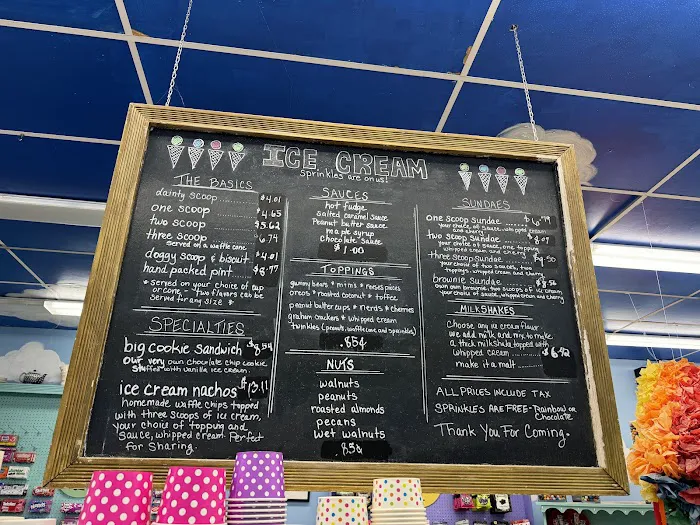 ICE CREAM
Sprinkles are on us!
THE BASICS
dainty scoop ........ $4.01
one scoop ........ $4.65
two scoop ........ $5.62
three scoop ........ $6.74
served on a waffle cone
doggy scoop & biscuit.. $4.01
hand packed pint ...... $8.77
* served on your choice of cup
or cone - two flavors can be
served for any size *
SPECIALTIES
big cookie sandwich $8.54
our very own chocolate chip cookie
stuffed with vanilla ice cream.
ice cream nachos $13.11
homemade waffle chips topped
with three scoops of ice cream,
your choice of topping and
sauce, whipped cream. Perfect
for sharing.
SAUCES
hot fudge
salted caramel sauce
Peanut butter sauce
maple syrup
chocolate sauce
$1.00
TOPPINGS
gummy bears * m&ms * reeses pieces
oreos * roasted coconut * toffee
peanut butter cups * nerds * cherries
graham crackers * whipped cream
twinkles (peanuts, waffle cone and sprinkles)
.85¢
NUTS
walnuts
peanuts
roasted almonds
pecans
wet walnuts
.85¢
SUNDAES
one scoop sundae .... $6.99
your choice of sauce, whipped cream
and cherry
two scoop sundae .... $8.07
your choice of sauce, one topping
whipped cream and cherry
three scoop sundae .... $9.50
your choice of two sauces, two
toppings, whipped cream and cherry
brownie sundae
own own brownie, two scoops of ice cream
your choice of sauce, whipped cream and cherry
MILKSHAKES
Choose any ice cream flavor
we add milk and mix to make
a thick milkshake topped with
whipped cream ........ $6.42
make it a malt ........
ALL PRICES INCLUDE TAX
SPRINKLES ARE FREE - Rainbow or
Chocolate
Thank You For Coming.